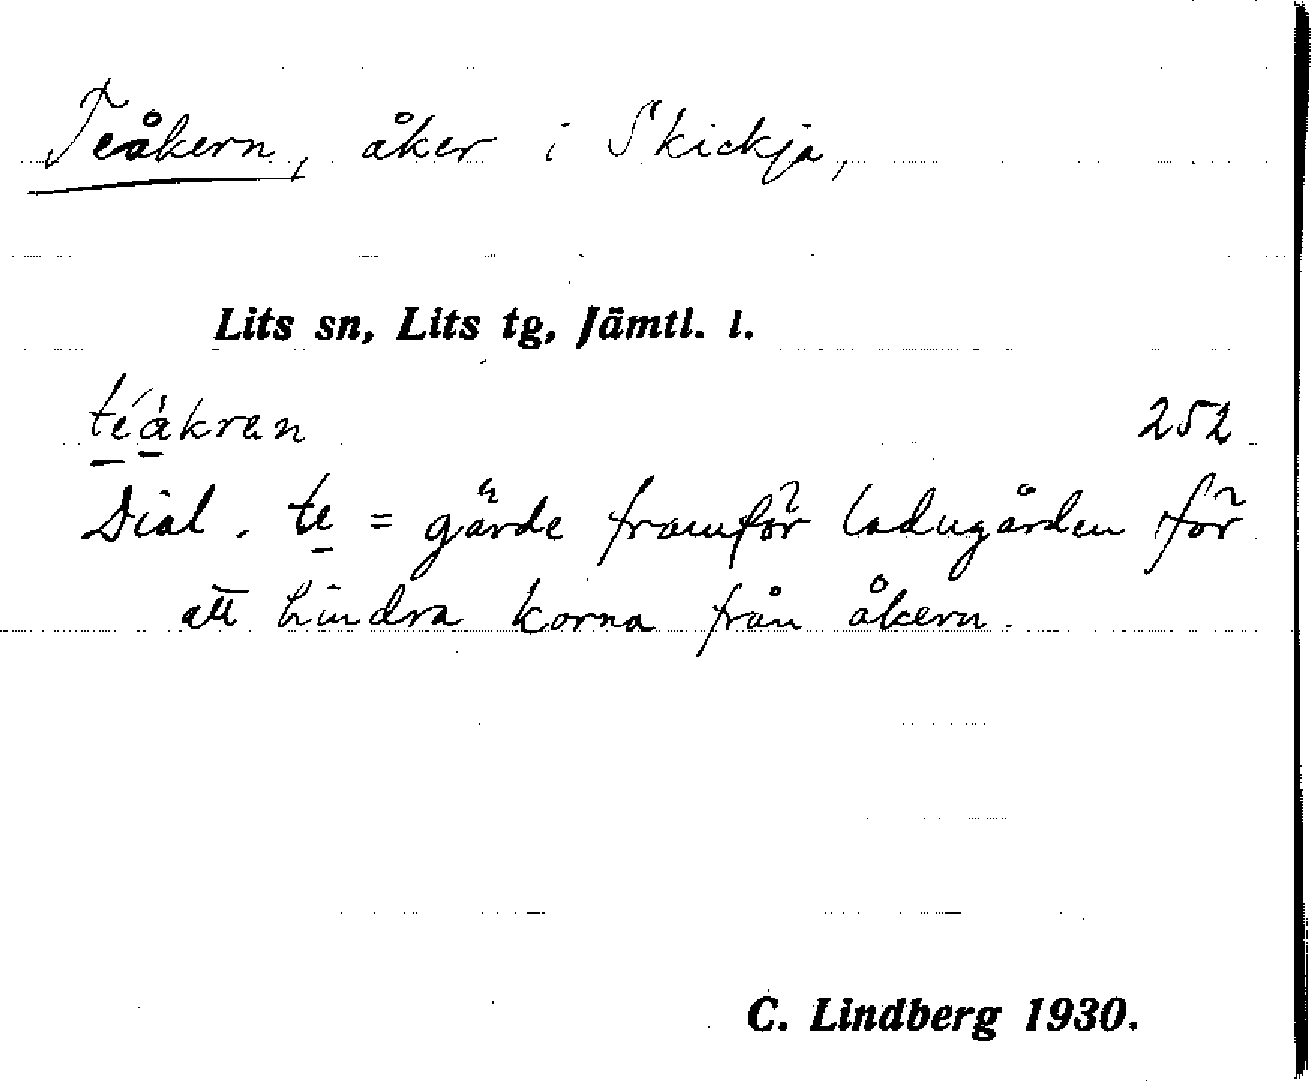 Teåkern, åker i Skickja,
Lits sn, Lits tg, Jämtl. l.
téåkren 252
Dial. te = gärde framför ladugården för
att hindra korna från åkern.
C. Lindberg 1930.